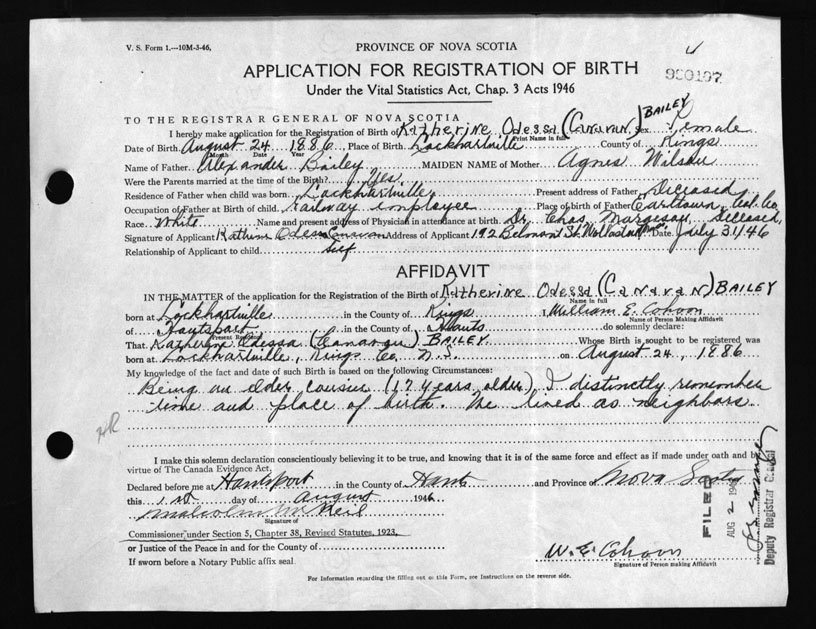 V. S. Form 1.—10M-3-46.
PROVINCE OF NOVA SCOTIA
APPLICATION FOR REGISTRATION OF BIRTH
Under the Vital Statistics Act, Chap. 3 Acts 1946
TO THE REGISTRAR GENERAL OF NOVA SCOTIA
I hereby make application for the Registration of Birth of Katherine Odessa (Canavan) BAILEY Sex Female
Print Name in full
Date of Birth August 24 1886 Place of Birth Lockhartville County of Kings
Month Date Year
Name of Father Alexander Bailey MAIDEN NAME of Mother Agnes Wilson
Were the Parents married at the time of the Birth? Yes
Residence of Father when child was born Lockhartville Present address of Father Deceased
Occupation of Father at Birth of child railway employee Place of birth of Father Earltown, Col. Co.
Race White Name and present address of Physician in attendance at birth Dr. Chas. Margeson, Deceased,
Signature of Applicant Katherine Odessa Canavan Address of Applicant 192 Belmont St. Wollaston Date July 31/46
Relationship of Applicant to child Self
AFFIDAVIT
IN THE MATTER of the application for the Registration of the Birth of Katherine Odessa (Canavan) BAILEY
Name in full
born at Lockhartville in the County of Kings I William E. Cohoon
Name of Person Making Affidavit
of Hantsport in the County of Hants do solemnly declare:
Present Residence
That Katherine Odessa (Canavan) BAILEY Whose Birth is sought to be registered was
born at Lockhartville, Kings Co. N.S. on August 24, 1886
My knowledge of the fact and date of such Birth is based on the following Circumstances:
Being an older cousin (17 years older), I distinctly remember
time and place of birth. We lived as neighbors.
I make this solemn declaration conscientiously believing it to be true, and knowing it is of the same force and effect as if made under oath and by
virtue of The Canada Evidence Act.
Declared before me at Hantsport in the County of Hants and Province of Nova Scotia
this 1st day of August 1946
Malcolm McNeil
Signature of
Commissioner under Section 5, Chapter 38, Revised Statutes, 1923,
or Justice of the Peace in and for the County of
If sworn before a Notary Public affix seal
W. E. Cohoon
Signature of Person making Affidavit
FILED
AUG 2
Deputy Registrar General
For Information regarding the filling out of this Form, see Instructions on the reverse side.